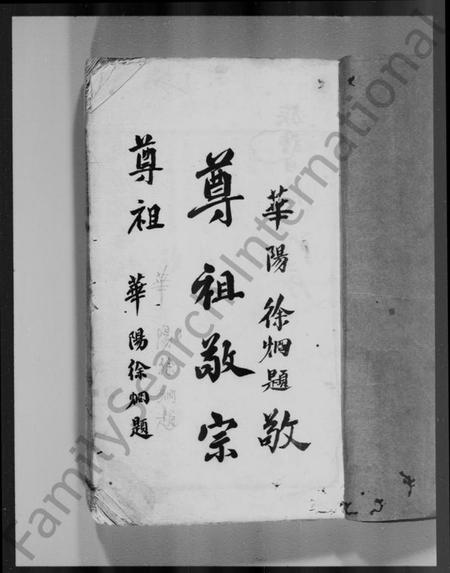 華陽徐炯題敬
尊祖敬宗
尊祖 華陽徐炯題
華陽徐炯題
FamilySearch International